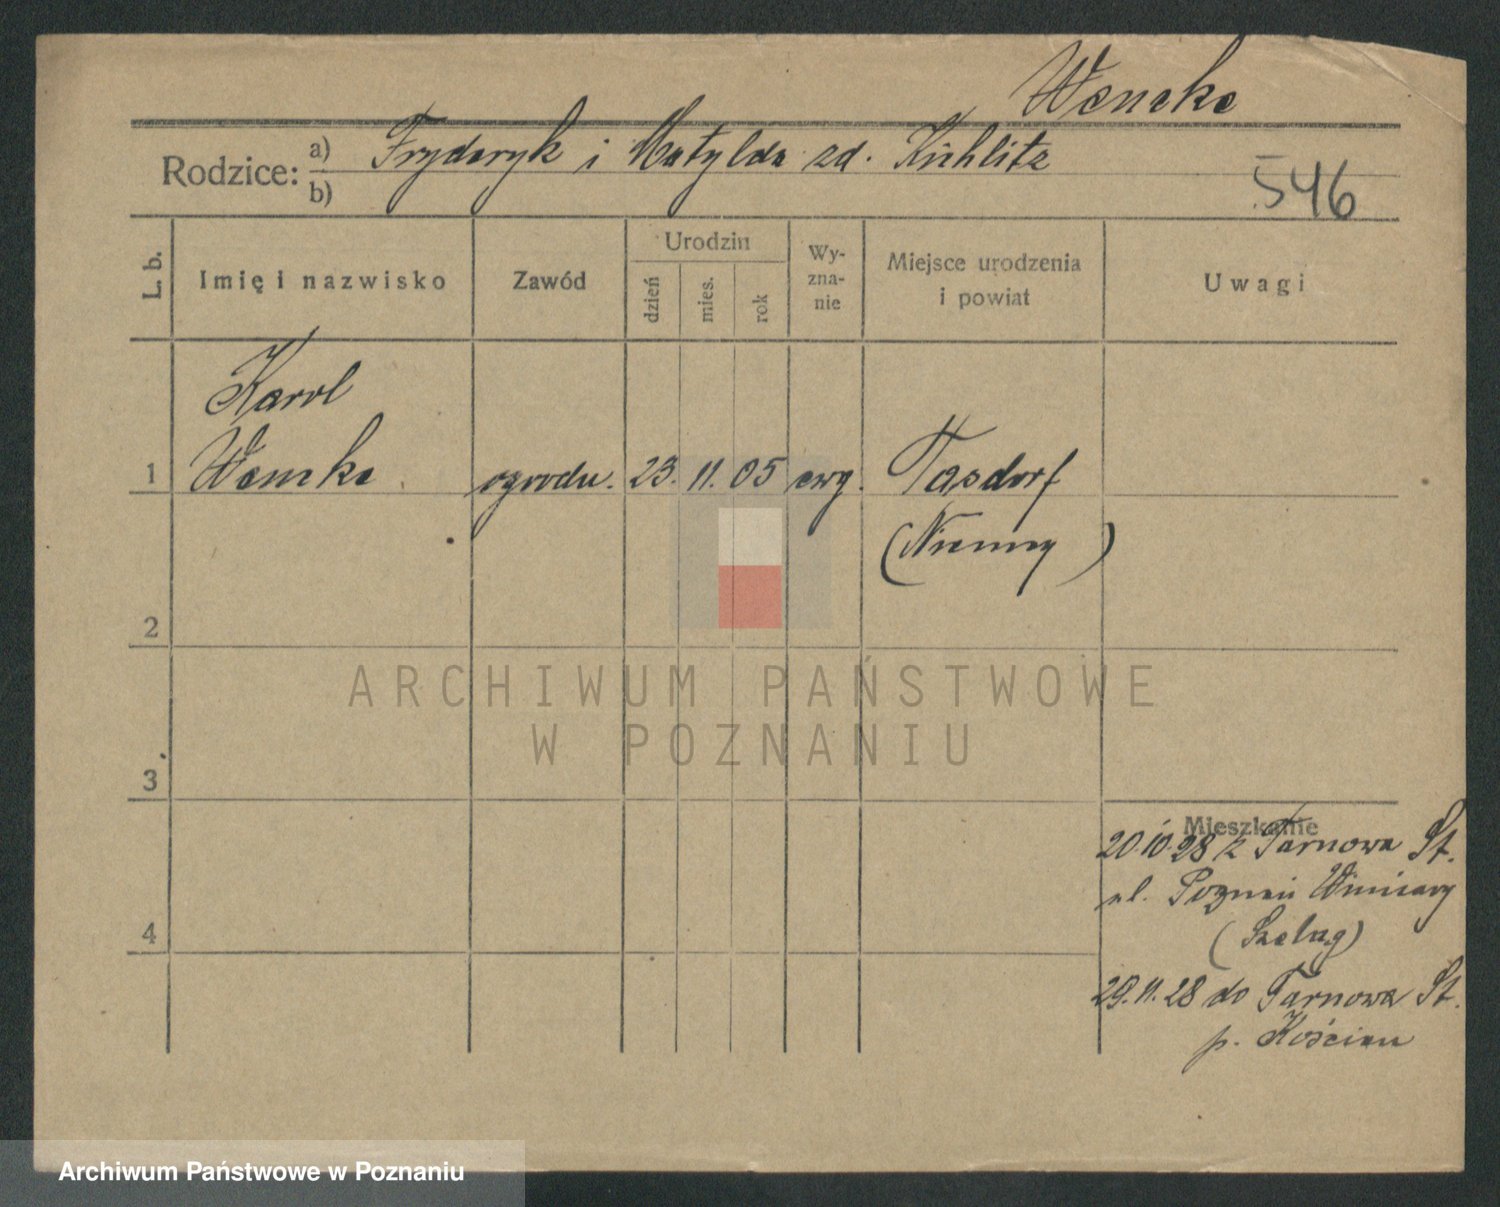 Wencke
Rodzice: a) Fryderyk i Matylda zd. Kühlitz
b)
546
L. b. Imię i nazwisko Zawód Urodzin dzień mies. rok Wy-zna-nie Miejsce urodzenia i powiat Uwagi
Karol
1 Wencke ogrodn. 23. 11. 05 ewg. Tasdorf
(Niemcy)
2
ARCHIWUM PAŃSTWOWE
W POZNANIU
3
Mieszkanie
20 10.28 z Tarnowa St.
ul. Poznań Winiary
4 (Szeląg)
29.11.28 do Tarnowa St.
p. Kościan
Archiwum Państwowe w Poznaniu